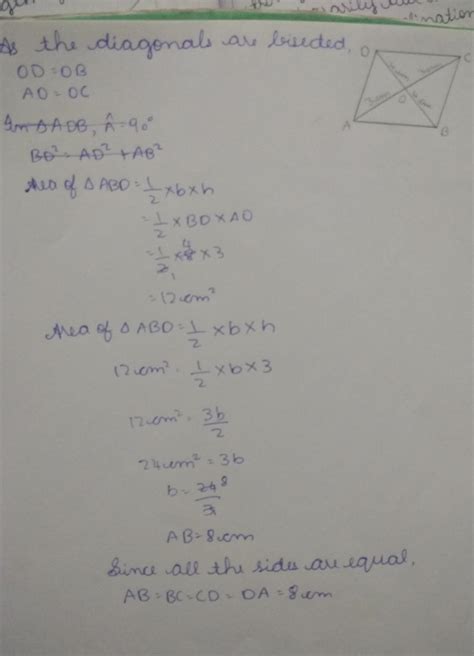 As the diagonals are bisected,
OD=OB
AO=OC
In ΔADB, Â=90°
BD²=AD²+AB²
Area of ΔABD=1/2×b×h
=1/2×BD×AO
=1/2×8 4×3
1
=12cm²
Area of ΔABD=1/2×b×h
12cm²=1/2×b×3
12cm²=3b/2
24cm²=3b
b=24 8/3
AB=8cm
Since all the sides are equal,
AB=BC=CD=DA=8cm
D
C
4cm
3cm
O
3cm
4cm
A
B